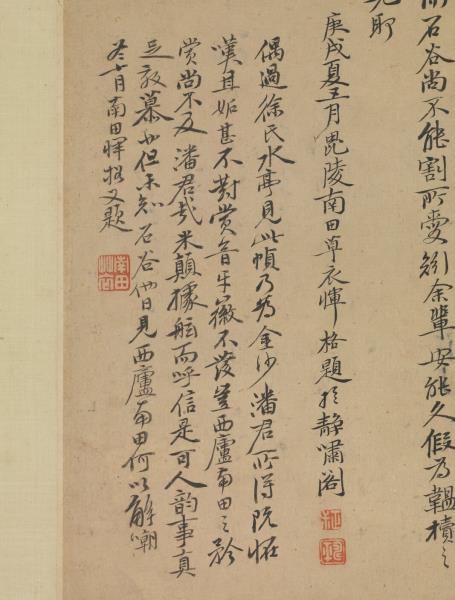 石谷尚不能割所愛矧余輩安能久假為韞櫝之
玩耶
庚戌夏五月毘陵南田草衣惲格題於靜嘯閣
偶過徐氏水亭見此幀乃為金沙潘君所得既怪
嘆且妬甚不對賞音牙徽不發豈西廬南田之矜
賞尚不及潘君哉米顛據舷而呼信是可人韻事真
足效慕也但未知石谷他日見西廬南田何以解嘲
冬十月南田惲格又題